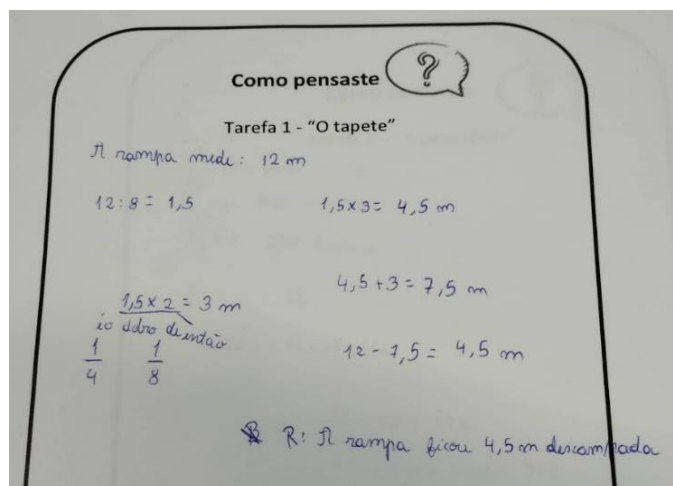 Como pensaste
?
Tarefa 1 - "O tapete"
A rampa mede: 12 m
12:8 = 1,5
1,5 x 3 = 4,5 m
4,5 + 3 = 7,5 m
1,5 x 2 = 3 m
io dobro de então
1/4 1/8
12 - 7,5 = 4,5 m
R: A rampa ficou 4,5 m descamada